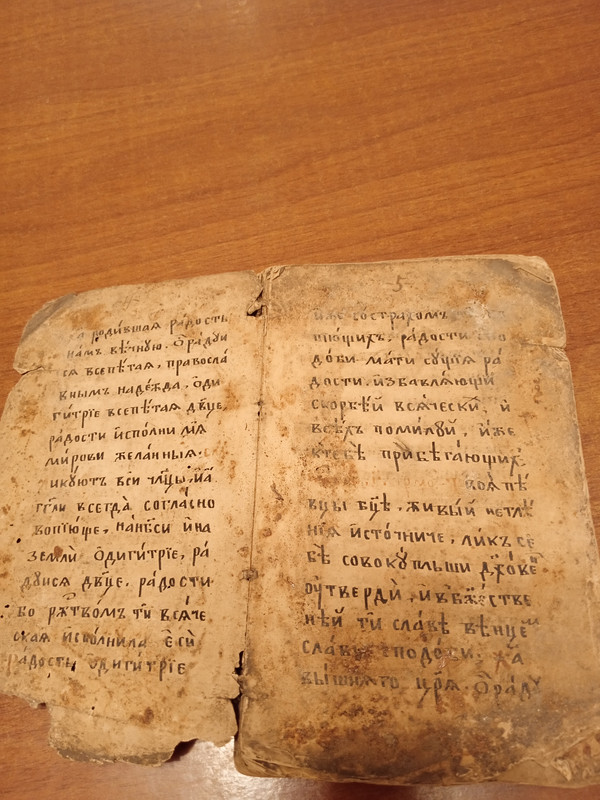 родившая ра́дость
на́мъ вѣ́чную. Ѻра́дуи
сѧ всепѣ́таѧ, правосла́
внымъ наде́жда. ѻ҆ди
ги́трїе всепѣ́таѧ дв҃це,
ра́дости и҆спо́лни мѧ̀
ми́рови жела́нныѧ.
икꙋ́ютъ вси ча́рцы, и҆а҆́
гг҃ли всегда̀ согла́сно
вопїю́ще, нан҃бси и҆ на
землѝ ѻ҆диги́трїе, ра́
дꙋисѧ дв҃це. ра́дости
бо рж҃тво́мъ ти̑ всѧ́че
скаѧ и҆спо́лнила є҆сѝ
ра́дость ѻ҆диги́трїе
5
и҆́же со стра́хомъ
пою́щихъ, ра́дости
до́би. ма́ти су́щїѧ ра́
дости, и҆збавлѧ́ющи
скорбе́й всѧ́чески, и҆
всѣ́хъ поми́луй, и҆́же
ктебѣ̀ прибѣга́ющихъ
воѧ пѣ
вцы бц҃е, живы́й нетлѣ́
нїѧ и҆сто́чниче, ли́къ се
бѣ̀ совокꙋ́пльши дх҃о́вё
оу҆тверди̑, и҆ в бж҃е́стве
нѣ́й ти̑ сла́вѣ вѣнце́
сла́вы сподо́би. хр҃а
вы́шнѧго цр҃ѧ̀. Ѻра́дꙋ